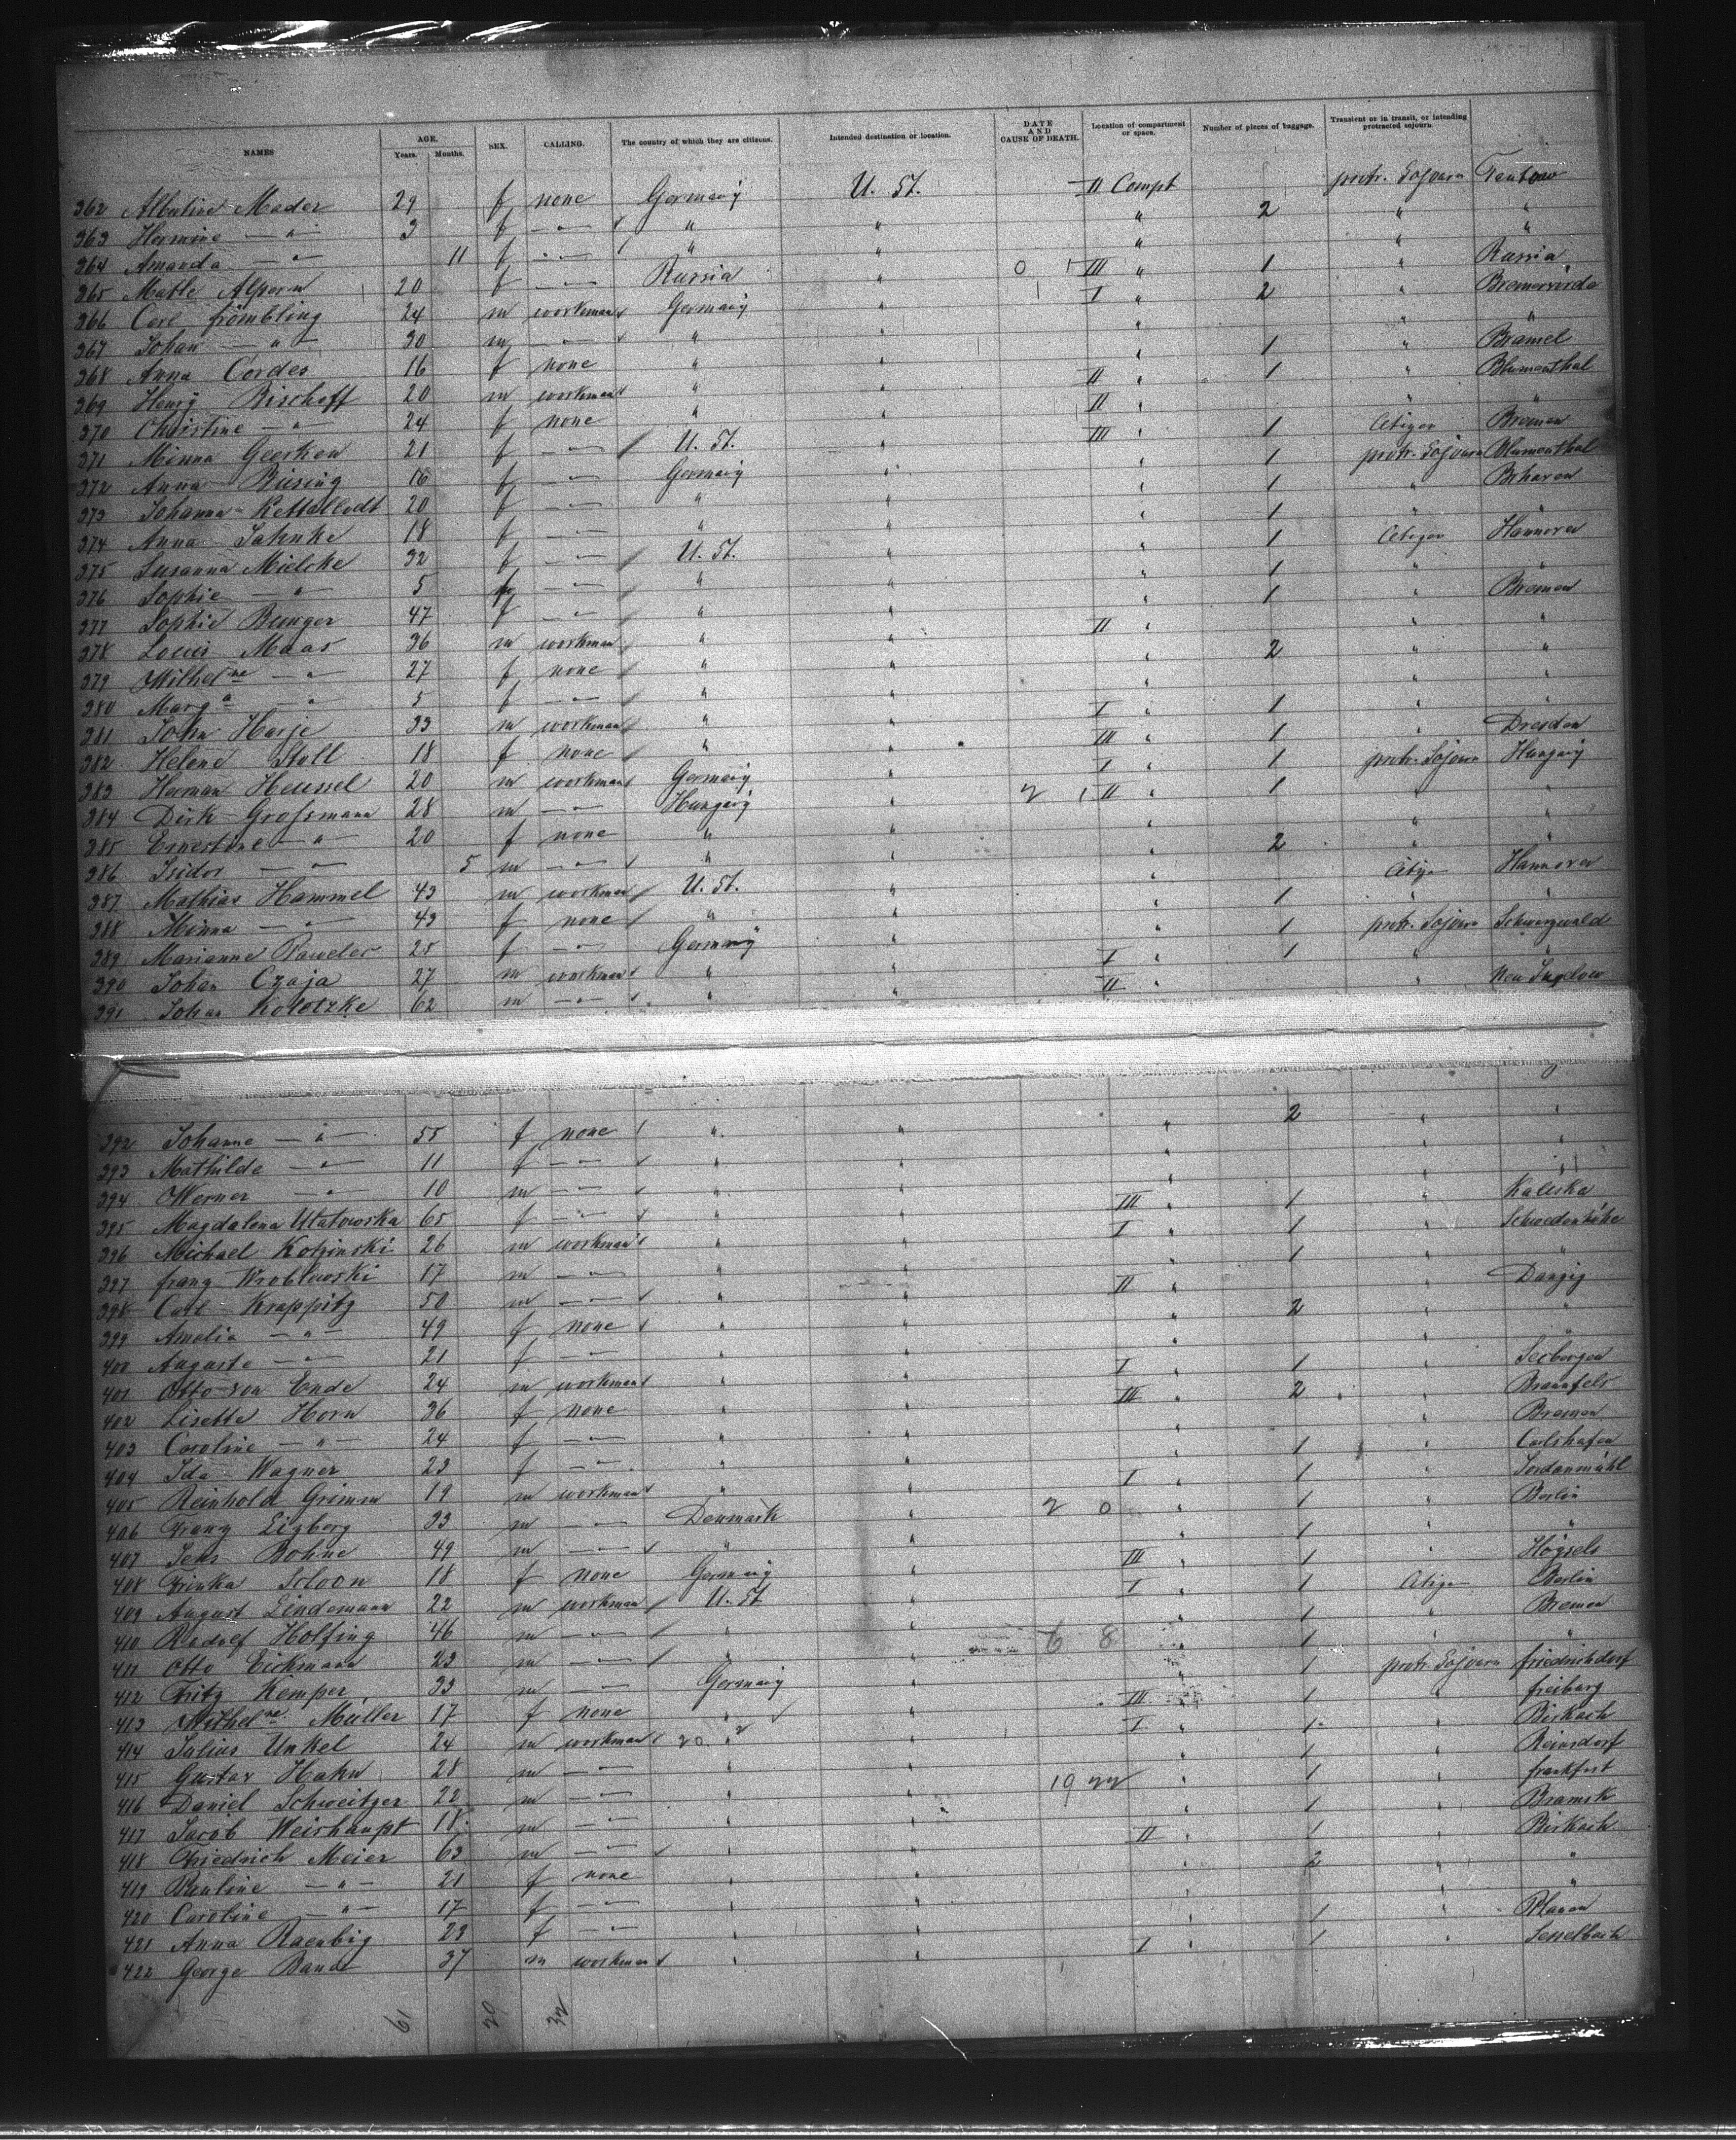 NAMES AGE. Years. Months. SEX. CALLING. The country of which they are citizens. Intended destination or location. DATE AND CAUSE OF DEATH. Location of compartment or space. Number of pieces of baggage. Transient or in transit, or intending protracted sojourn.
362 Albertine Mader 29 f none Germany U. St. II Compt protr. Sojourn
363 Hermine — " — 3 f — " — " " " 2 " "
364 Amanda — " — 11 f — " — " " " " "
365 Matle Alpern 20 f — " — Russia " 0 1 III " 1 " Russia
366 Carl Frömbling 24 m workman Germany " 1 I " 2 " Bremervörde
367 Johan — " — 30 m — " — " " " " "
368 Anna Cordes 16 f none " " " 1 " Bramel
369 Henry Bischoff 20 m workman " " II " 1 " Blumenthal
370 Christine — " — 24 f none " " II " " "
371 Minna Geerken 21 f — " — U. St. " III " 1 Citizen Bremen
372 Anna Büsing 16 f — " — Germany " " 1 protr. Sojourn Blumenthal
373 Johanna Kettelhodt 20 f — " — " " " 1 " Bhaven
374 Anna Jahnke 18 f — " — " " " 1 " "
375 Susanna Mielcke 32 f — " — U. St. " " 1 Citizen Hannover
376 Sophie — " — 5 f — " — " " " 1 " "
377 Sophie Bunger 47 f — " — " " " 1 " Bremen
378 Louis Maas 36 m workman " " II " " "
379 Wilhelne — " — 27 f none " " " 2 " "
380 Marga — " — 5 f — " — " " " " "
381 John Harje 33 m workman " " I " 1 " "
382 Helene Stoll 18 f none " " III " 1 " Dresden
383 Herman Heussel 20 m workman Germany " I " 1 protr. Sojourn Hungary
384 Dirk Grossmann 28 m — " — Hungary " 2 1 II " 1 " "
385 Ernestine — " — 20 f none " " " " "
386 Isidor — " — 5 m — " — " " " 2 " "
387 Mathias Hammel 43 m workman U. St. " " Citizen Hannover
388 Minna — " — 43 f none " " " 1 " "
389 Marianne Paweler 25 f — " — Germany " " 1 protr. Sojourn Schwarzwald
390 Johan Czaja 27 m workman " " I " 1 " "
391 Johan Kolotzke 62 m — " — " " II " "
392 Johanne — " — 55 f none " " " 2 " "
393 Mathilde — " — 11 f — " — " " " " "
394 Werner — " — 10 m — " — " " " " "
395 Magdalena Utatowska 65 f — " — " " III " 1 " Kaliska
396 Michael Kotzinski 26 m workman " " I " 1 "
397 Franz Wroblewski 17 m — " — " " " 1 " "
398 Carl Krappitz 50 m — " — " " II " " Danzig
399 Amalia — " — 49 f none " " " 2 " "
400 Auguste — " — 21 f — " — " " " " "
401 Otto von Ende 24 m workman " " I " 1 " Seebergen
402 Lisette Horn 36 f none " " III " 2 " Braunfels
403 Caroline — " — 24 f — " — " " " " Bremen
404 Ida Wagner 23 f — " — " " " 1 " Carlshafen
405 Reinhold Grimm 19 m workman " " I " 1 " Jordanmühl
406 Franz Ligberg 33 m — " — Denmark " 2 0 " 1 " Berlin
407 Jens Bohne 49 m — " — " " " 1 " "
408 Trinka Scloon 18 f none Germany " III " 1 "
409 August Lindemann 22 m workman U. St. " I " 1 Citizen Berlin
410 Rudolf Holfing 46 m — " — " " 6 8 " 1 " Bremen
411 Otto Eickmann 23 m — " — " " " 1 " "
412 Fritz Kemper 33 m — " — Germany " " 1 protr. Sojourn Friedrichdorf
413 Wilhelne Müller 17 f none " " III " 1 " Freiburg
414 Julius Unkel 24 m workman 20 " 2 " I " 1 " Birkach
415 Gustav Hahn 28 m — " — " " " 1 " Reinsdorf
416 Daniel Schweitzer 22 m — " — " " 19 22 " 1 " Frankfurt
417 Jacob Weishaupt 18 m — " — " " " 1 " Bramsk
418 Friedrich Meier 63 m — " — " " II " 1 " Birkach
419 Pauline — " — 21 f none " " " 2 " "
420 Caroline — " — 17 f — " — " " " " "
421 Anna Raenbig 23 f — " — " " " 1 " Plauen
422 George Bande 37 m workman " " I " 1 " Sesselbach
61 20 32